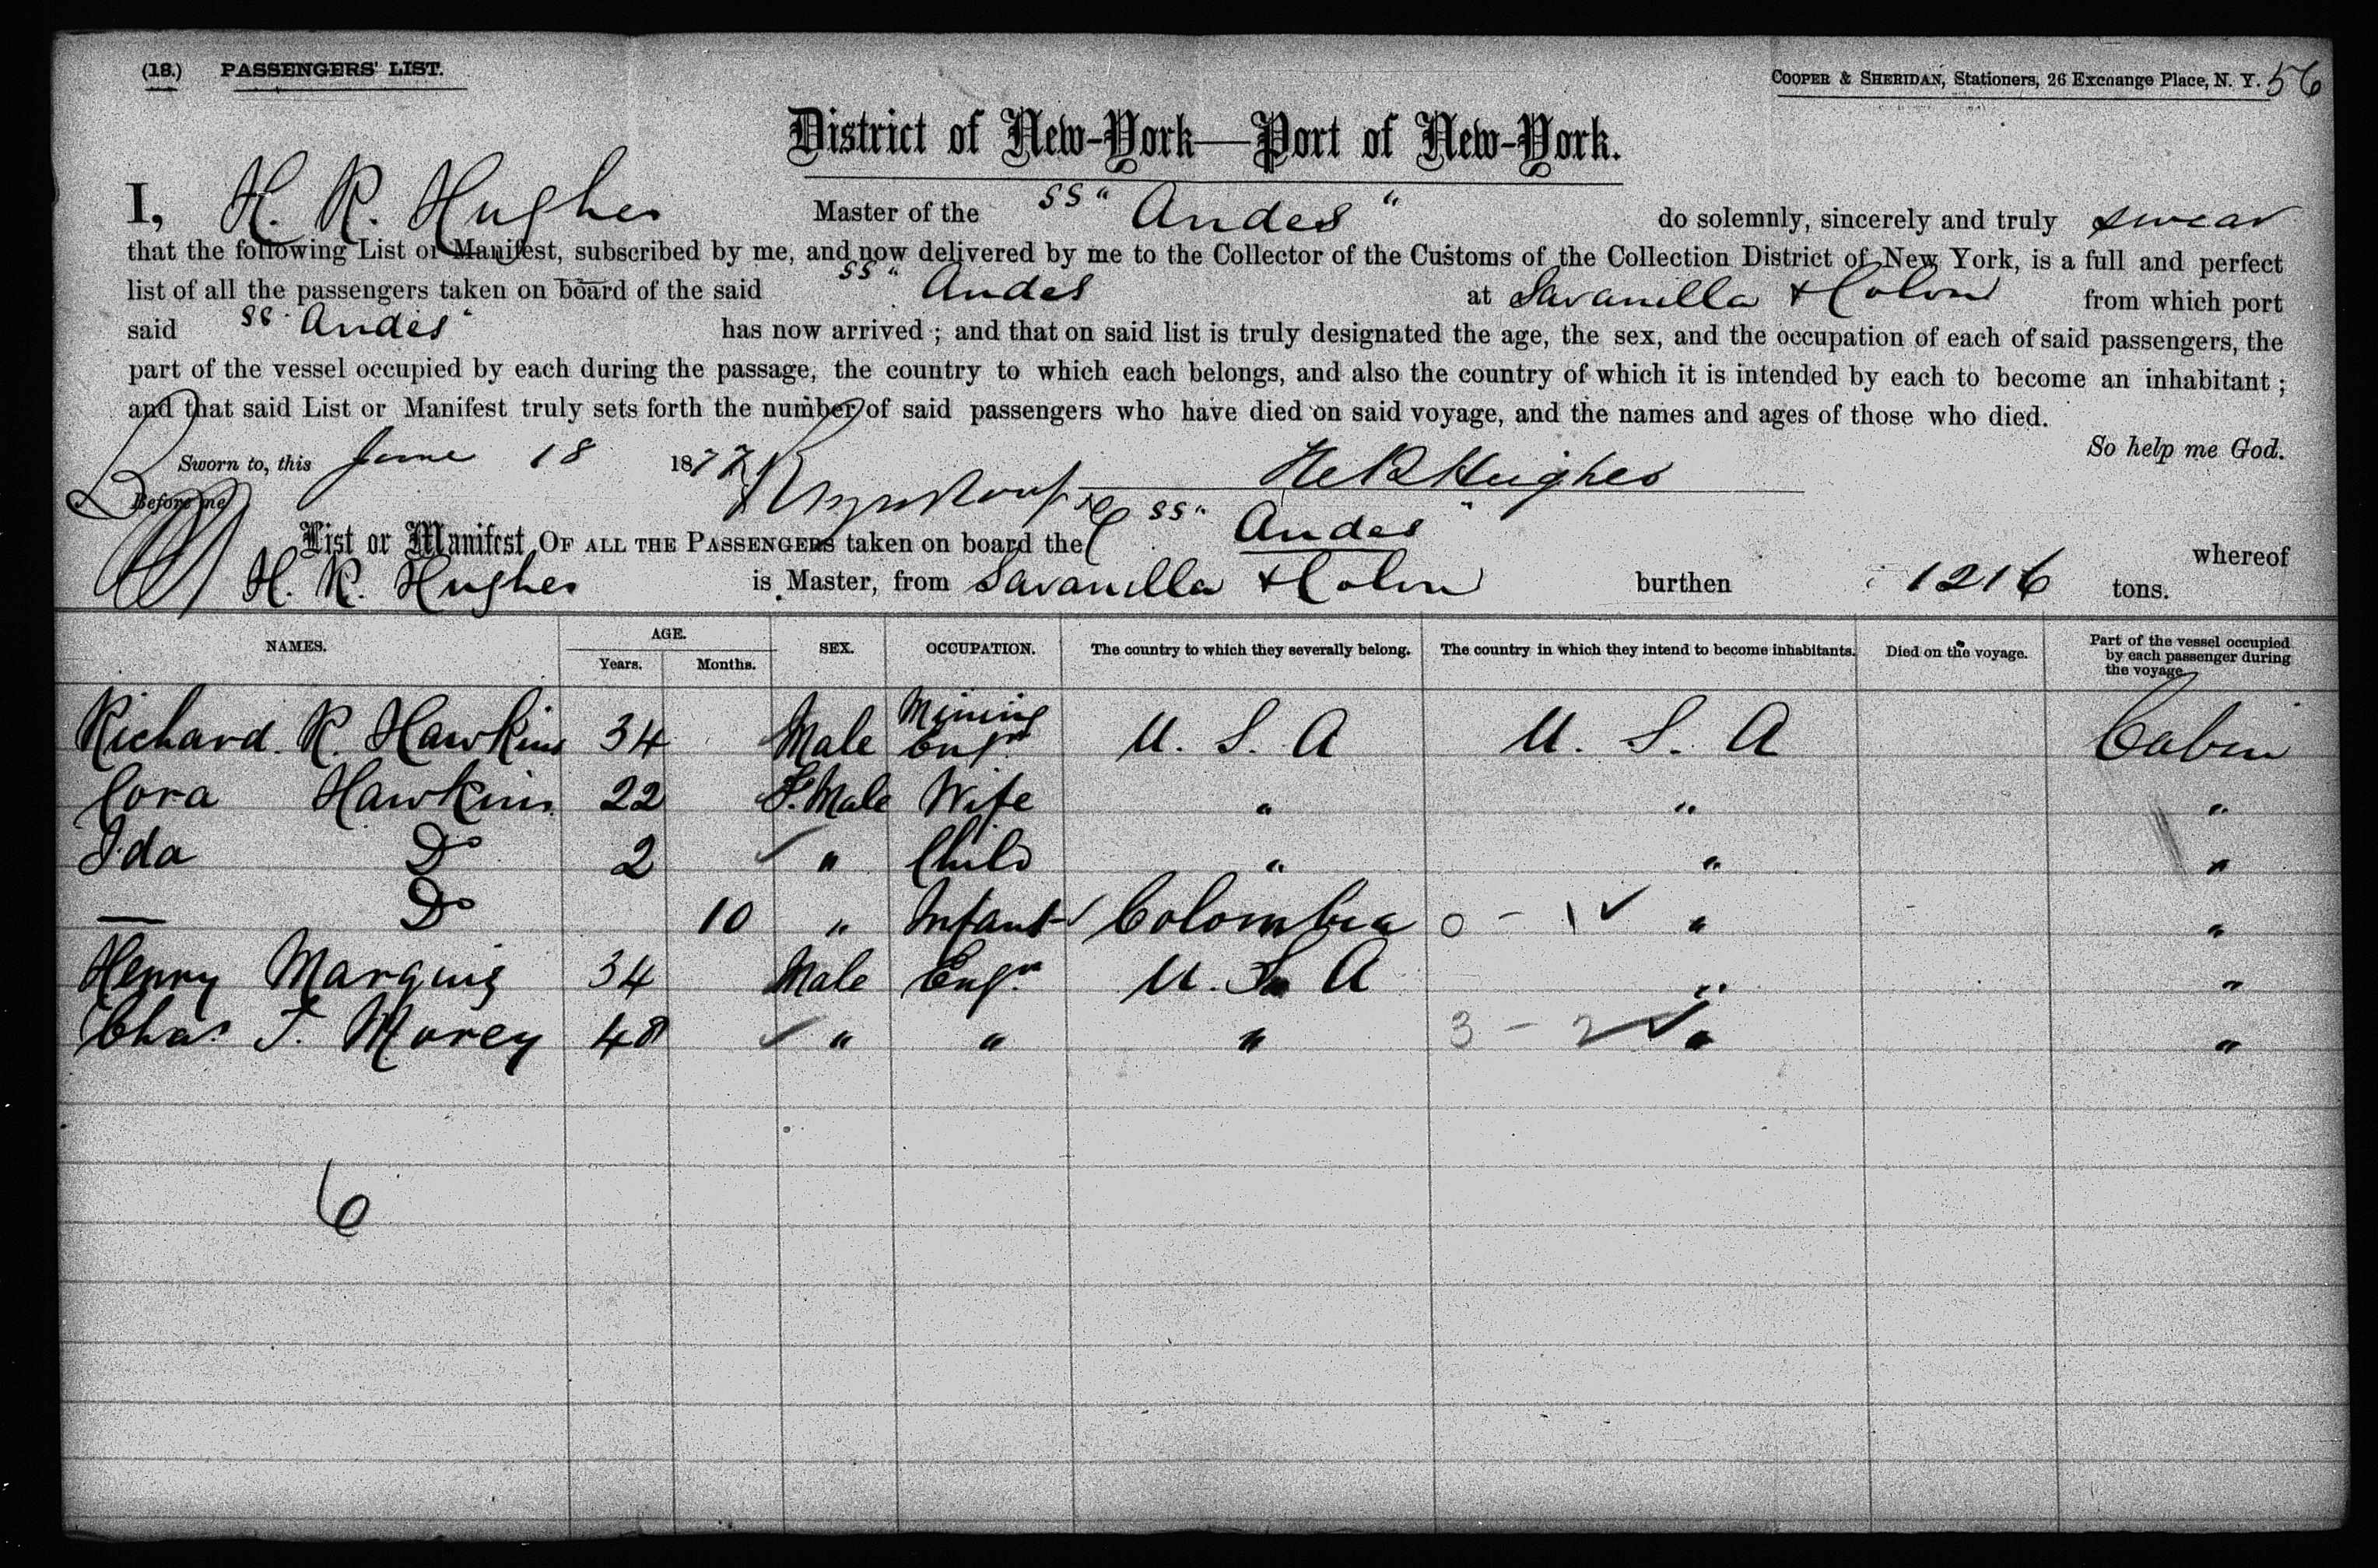 (18.) PASSENGERS' LIST. COOPER & SHERIDAN, Stationers, 26 Exchange Place, N. Y. 56
District of New-York—Port of New-York.
I, H. R. Hughes Master of the SS "Andes" do solemnly, sincerely and truly swear
that the following List or Manifest, subscribed by me, and now delivered by me to the Collector of the Customs of the Collection District of New York, is a full and perfect
list of all the passengers taken on board of the said SS "Andes at Savanilla + Colon from which port
said SS "Andes" has now arrived ; and that on said list is truly designated the age, the sex, and the occupation of each of said passengers, the
part of the vessel occupied by each during the passage, the country to which each belongs, and also the country of which it is intended by each to become an inhabitant ;
and that said List or Manifest truly sets forth the number of said passengers who have died on said voyage, and the names and ages of those who died.
So help me God.
Sworn to, this June 18 1877 H R Hughes
Before me
List or Manifest OF ALL THE PASSENGERS taken on board the SS "Andes" whereof
H. R. Hughes is Master, from Savanilla + Colon burthen 1216 tons.
NAMES. AGE. Years. Months. SEX. OCCUPATION. The country to which they severally belong. The country in which they intend to become inhabitants. Died on the voyage. Part of the vessel occupied by each passenger during the voyage
Richard. R. Hawkins 34 Male Mining Engr U. S. A U. S. A Cabin
Cora Hawkins 22 F. Male Wife " " "
Ida Do 2 ✓ " Child " " "
— Do 10 " Infant ✓ Colombia 0 - 1 ✓ " "
Henry Marquis 34 Male Engr U. S. A " "
Chas T. Morey 48 ✓ " " " 3 - 2 ✓ " "
6